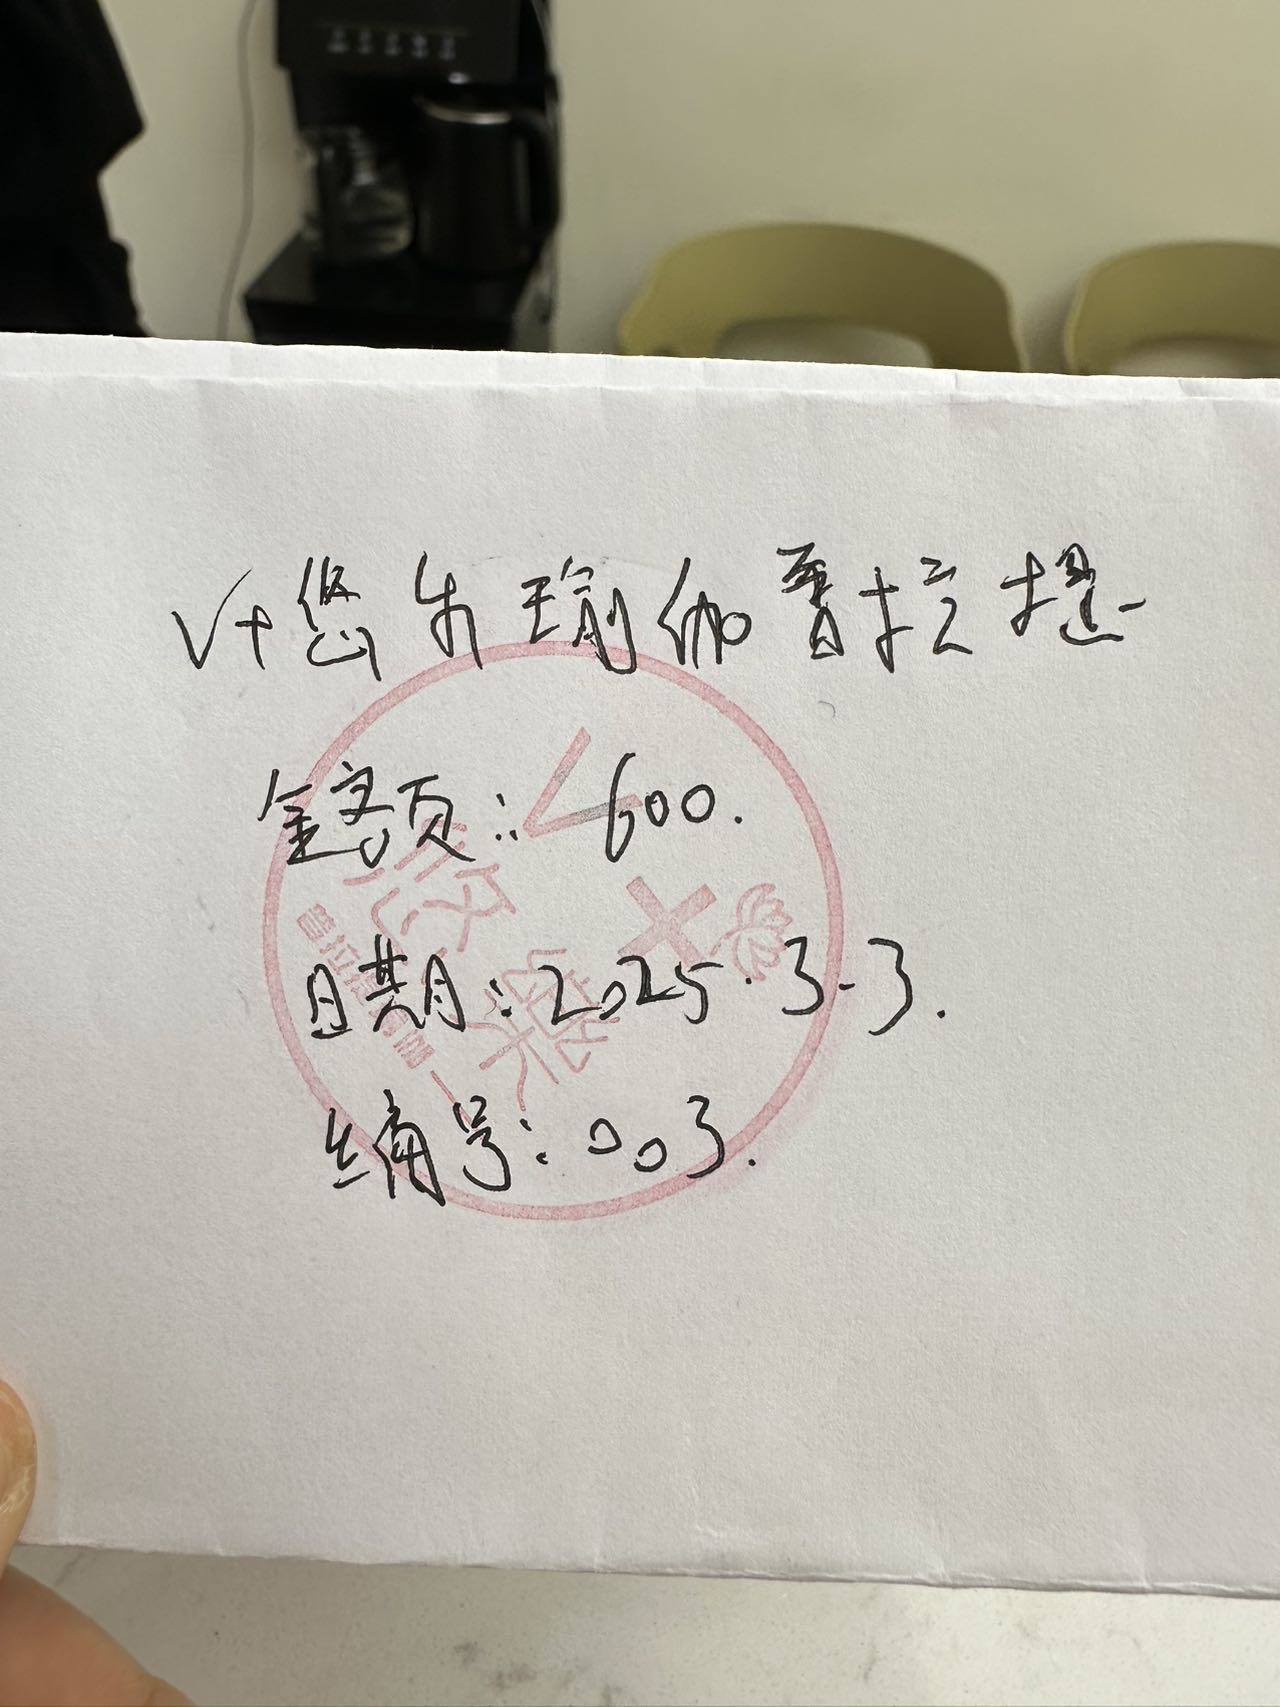 V+悠乐瑜伽普拉提
金额：600.
日期：2025.3.3.
编号：003.